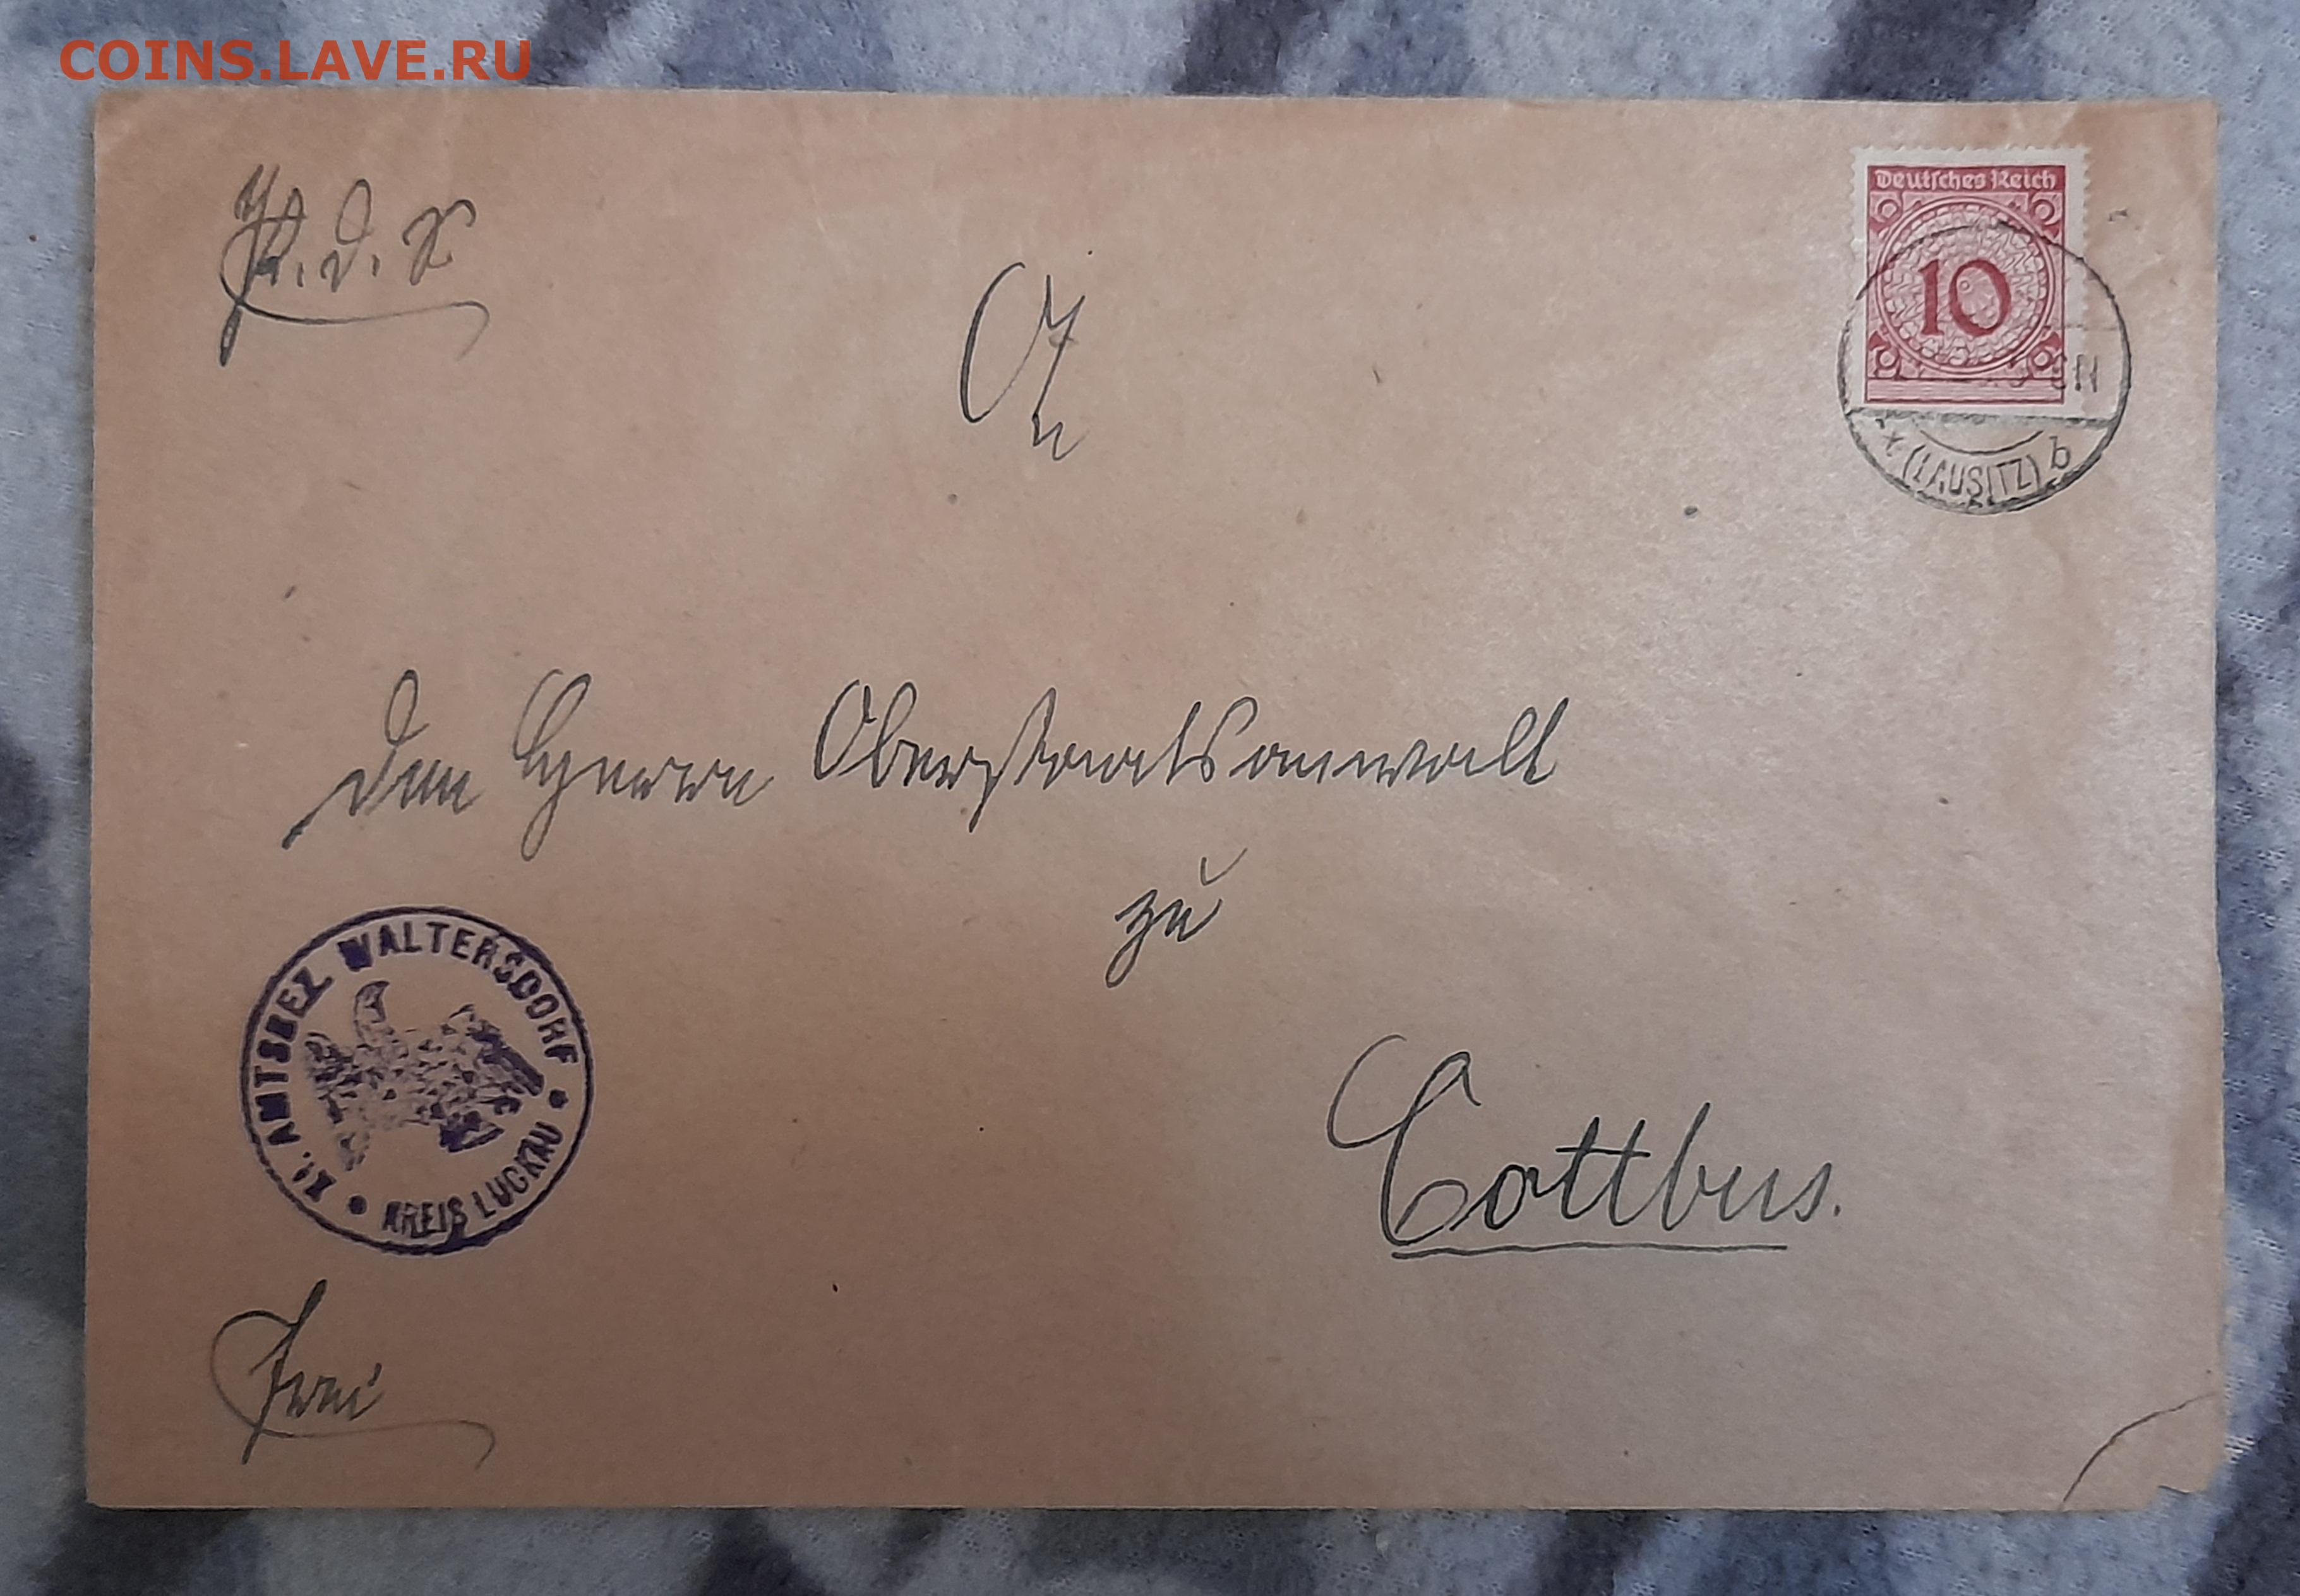 COINS.LAVE.RU
Deutsches Reich
10
(LAUSITZ) b
An
den Herrn Oberstaatsanwalt
zu
Cottbus.
AMTSBEZ. WALTERSDORF
KREIS LUCKAU
Frei